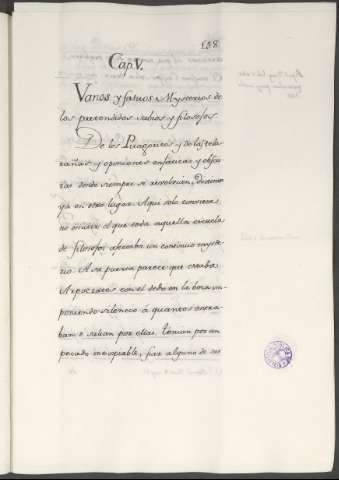 158.
Cap. V.
Vanos y fatuos Mysterios de
los pretendidos sabios y filosofos
De los Pitagoricos y de las tela
rañas y opiniones enfaticas y obscu
ras donde siempre se revolvian, diximos
ya en otro lugar. Aqui solo conviene
no omitir el que toda aquella escuela
de filosofos afectaba un continuo myste
rio. A su puerta parece que estaba
Arpocrates con el dedo en la boca im-
poniendo silencio á quantos entra-
ban ó salian por ellas. tenian por un
pecado inexpiable, fiar alguno de sus